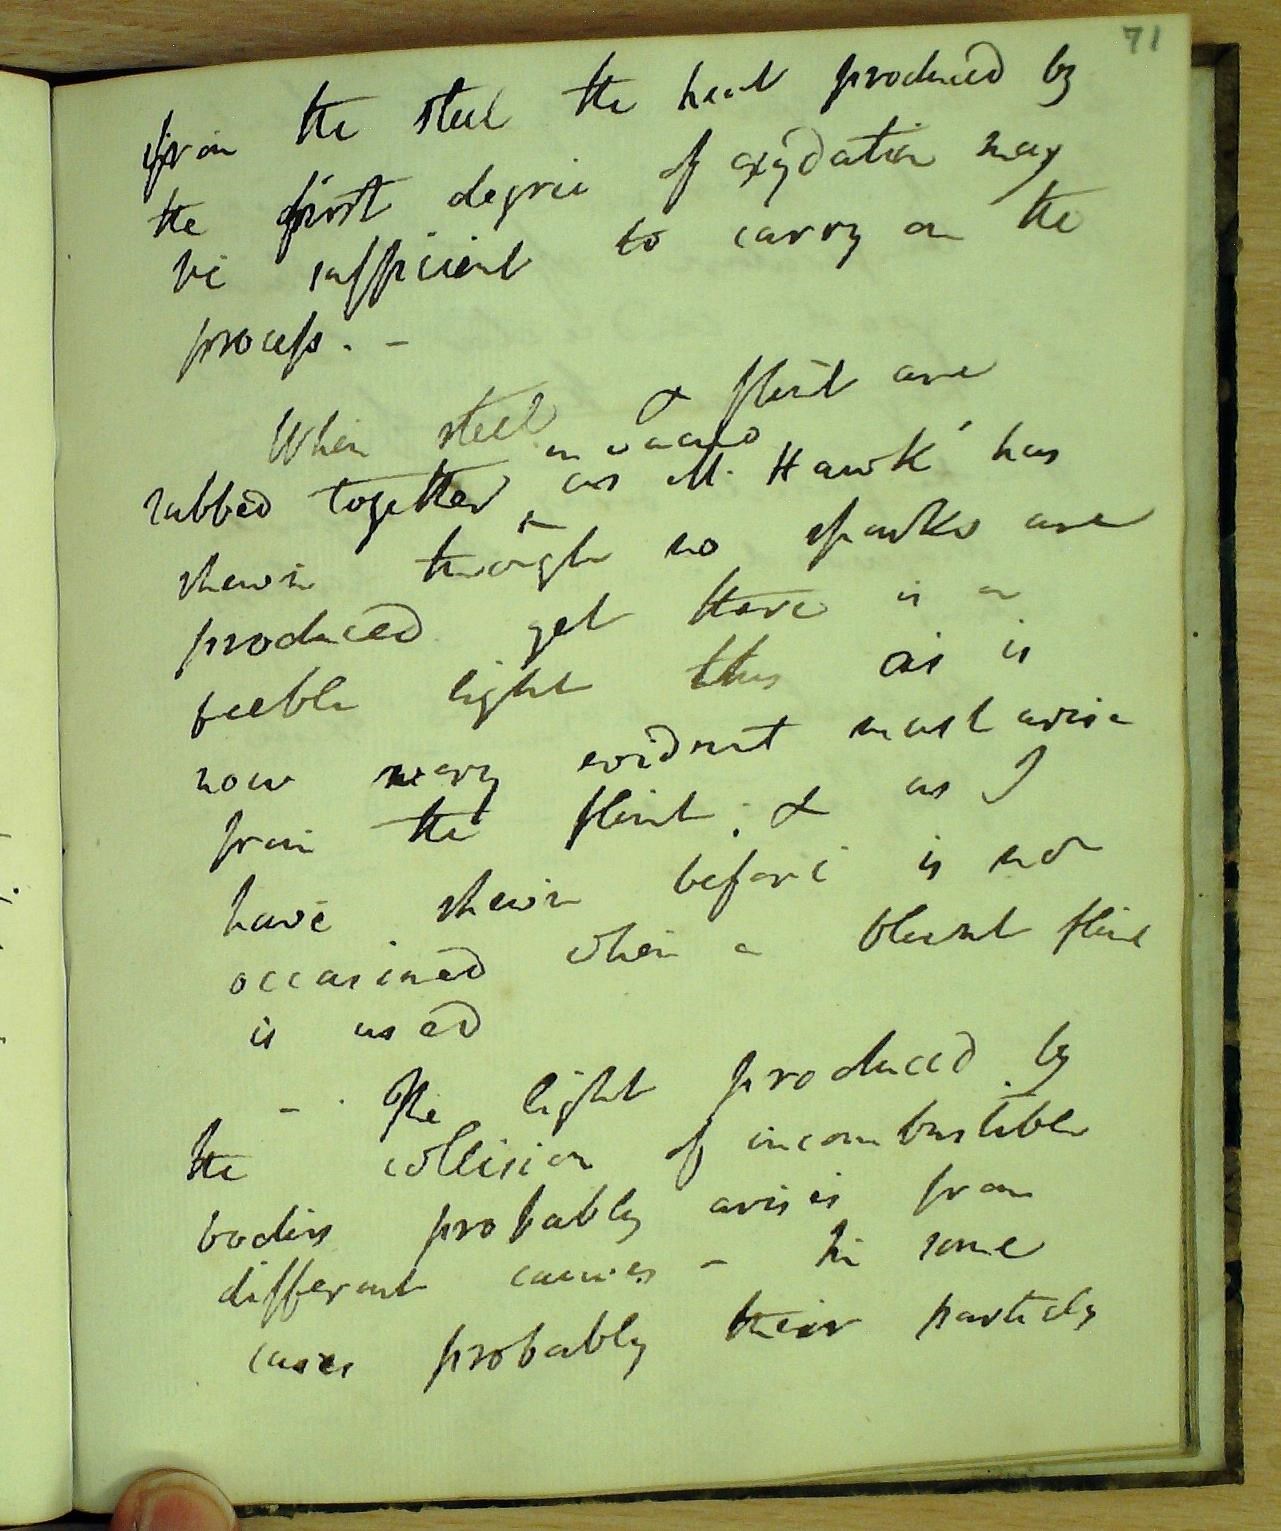 71
from the steel the heat produced by
the first degree of oxydation may
be sufficient to carry on the
process. -
When steel & flint are
in vacuo
rubbed together, as Mr. Hawk has
shewn though no sparks are
produced yet there is a
feeble light this as is
now very evident must arise
from the flint; & as I
have shewn before is not
occasined when a blunt flint
is used
- The light produced by
the collision of incombustible
bodies probably arises from
different causes - In some
cases probably their particles